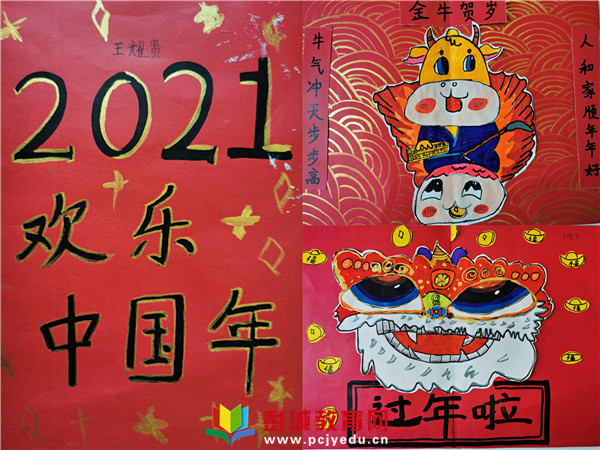 王耀贤
2021
欢乐
中国年
金牛贺岁
牛气冲天步步高
人和家顺年年好
福
福
福
福
福
过年啦
彭城教育网
www.pcjyedu.cn